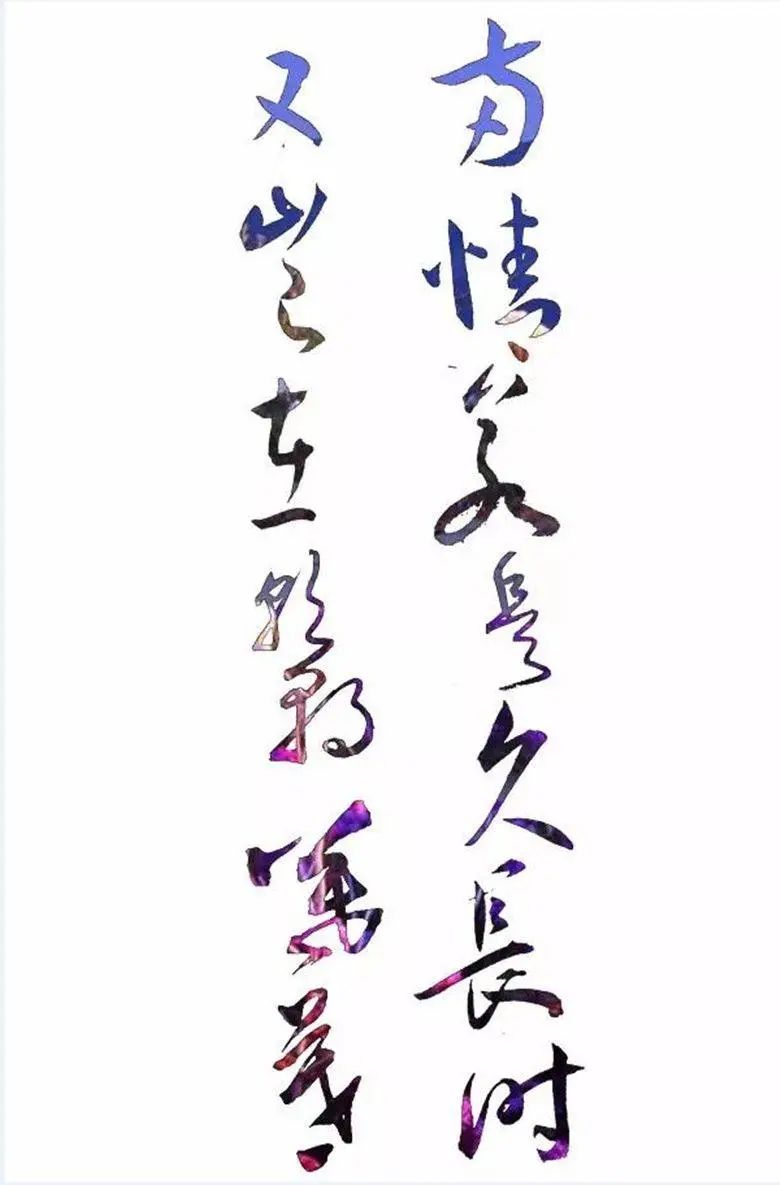 两情若是久長时
又岂在朝朝暮暮